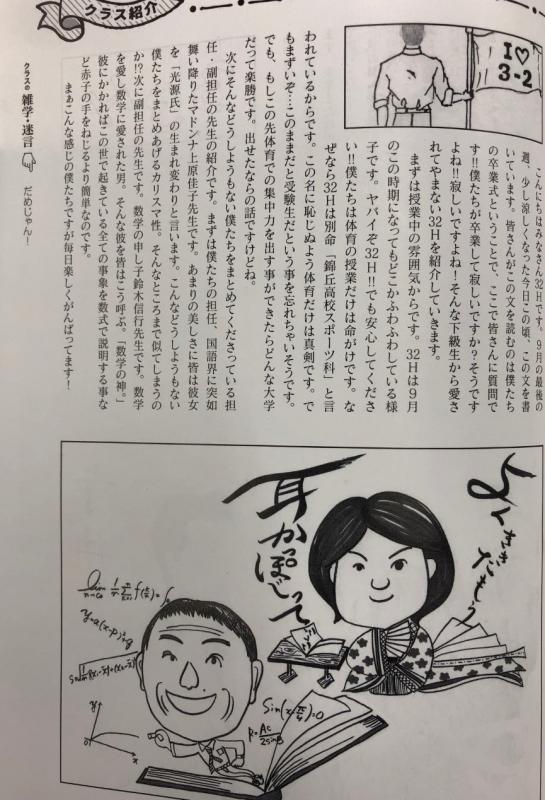 クラス紹介
I♡
3-2
こんにちはみなさん32Hです。9月の最後の
週、少し涼しくなった今日この頃、この文を書
いています。皆さんがこの文を読むのは僕たち
の卒業式ということで、ここで皆さんに質問で
す!!僕たちが卒業して寂しいですか?そうです
よね!!寂しいですよね!そんな下級生から愛さ
れてやまない32Hを紹介していきます。
まずは授業中の雰囲気からです。32Hは9月
のこの時期になってもどこかふわふわしている様
子です。ヤバイぞ32H!!でも安心してくださ
い!!僕たちは体育の授業だけは命がけです。な
ぜなら32Hは別命「錦丘高校スポーツ科」と言
われているからです。この名に恥じぬよう体育だけは真剣です。で
もまずいぞ…このままだと受験生だという事を忘れちゃいそうです。
でも、もしこの先体育での集中力を出す事ができたらどんな大学
だって楽勝です。出せたならの話ですけどね。
次にそんなどうしようもない僕たちをまとめてくださっている担
任・副担任の先生の紹介です。まずは僕たちの担任、国語界に突如
舞い降りたマドンナ上原佳子先生です。あまりの美しさに皆は彼女
を「光源氏」の生まれ変わりと言います。こんなどうしようもない
僕たちをまとめあげるカリスマ性。そんなところまで似てしまうの
か!?次に副担任の先生です。数学の申し子鈴木信行先生です。数学
を愛し数学に愛された男。そんな彼を皆はこう呼ぶ。「数学の神。」
彼にかかればこの世で起きている全ての事象を数式で説明する事な
ど赤子の手をねじるより簡単なのです。
まぁこんな感じの僕たちですが毎日楽しくがんばってます!
クラスの雑学・迷言 だめじゃん!
よくききたもう
耳かっぽじって
y=a(x-p)²+q
y
0
x
Sin(x π/4)=0
R=AC/2sinB